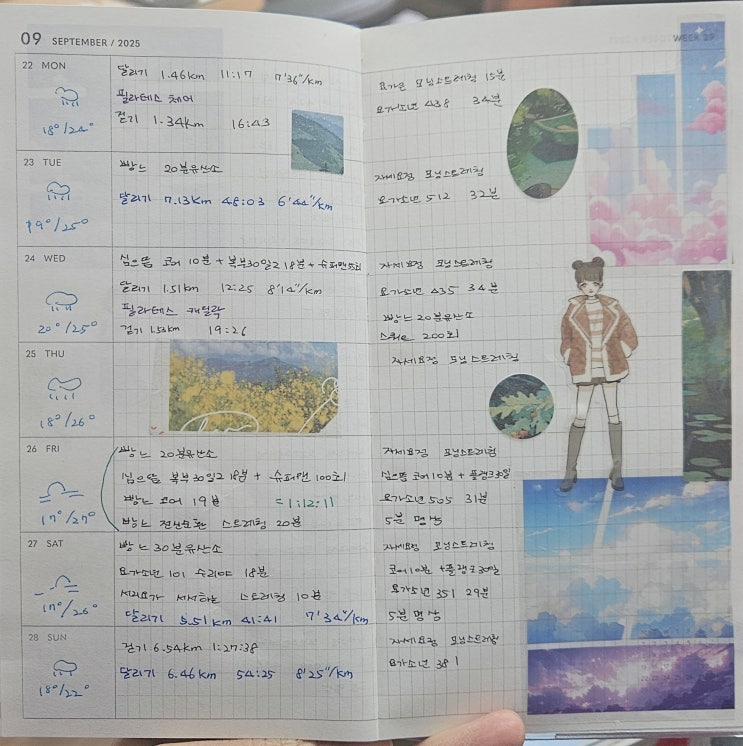 09 SEPTEMBER / 2025
22 MON
18°/24°
달리기 1.46km 11:17 7'36"/km
필라테스 체어
걷기 1.34km 16:43
23 TUE
19°/25°
빵느 20분유산소
달리기 7.13km 48:03 6'44"/km
24 WED
20°/25°
심으뜸 코어 10분 + 복부30일2 18분 + 슈퍼맨
달리기 1.51km 12:25 8'14"/km
필라테스 캐딜락
걷기 1.53km 19:26
25 THU
18°/26°
26 FRI
17°/27°
빵느 20분유산소
심으뜸 복부30일2 18분 + 슈퍼맨 100회
빵느 코어 19분 =1:12:11
빵느 전신순환 스트레칭 20분
27 SAT
17°/26°
빵느 30분유산소
요가소년 101 수리야 18분
서서하는 스트레칭 10분
달리기 5.51km 41:41 7'34"/km
28 SUN
18°/22°
걷기 6.54km 1:27:38
달리기 6.46km 54:25 8'25"/km
WEEK 39
모닝스트레칭 15분
요가소년 438 34분
자세요정 모닝스트레칭
요가소년 512 32분
자세요정 모닝스트레칭
요가소년 435 34분
빵느 20분유산소
200회
자세요정 모닝스트레칭
자세요정 모닝스트레칭
심으뜸 코어10분 + 플랭크30일
요가소년 505 31분
5분 명상
자세요정 모닝스트레칭
코어10분 + 플랭크30일
요가소년 351 29분
5분 명상
자세요정 모닝스트레칭
요가소년 381